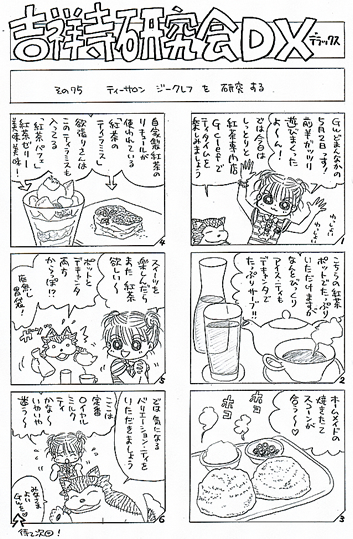 吉祥寺研究会DX
デラックス
その75 ティーサロン ジークレフ を 研究 する
GWどまんなかの
5月2日っす!
前半ガッツリ
遊びまくった
よ〜ん!
では今日は
しっとりと
紅茶専門店
Gclefで
ティタイムを
楽しみましょう
1
こちらの紅茶
ポットでたっぷり
いただけますが
なんとびっくり
アイスティも
デキャンタで
たっぷりサーブ!!
2
ホームメイドの
焼きたて
スコーンが
合う〜♡
ホコ
ホコ
3
自家製紅茶の
リキュールが
使われている
「紅茶の
ティラミス」
欲張りさんは
このティラミスも
入ってる
「紅茶パフェ」
紅茶ゼリー
美味美味!
4
スイーツを
楽しんだら
また紅茶
欲しい〜
ポットと
デキャンタ
両方
からっぽ!?
底無し
胃袋!
5
では気になる
バリエーションティを
いただきましょう
ここは
定番
ロイヤル
ミルク
ティ
かな〜
いやいや
迷う〜
みなさま
よい
GWを
6
待て次回!